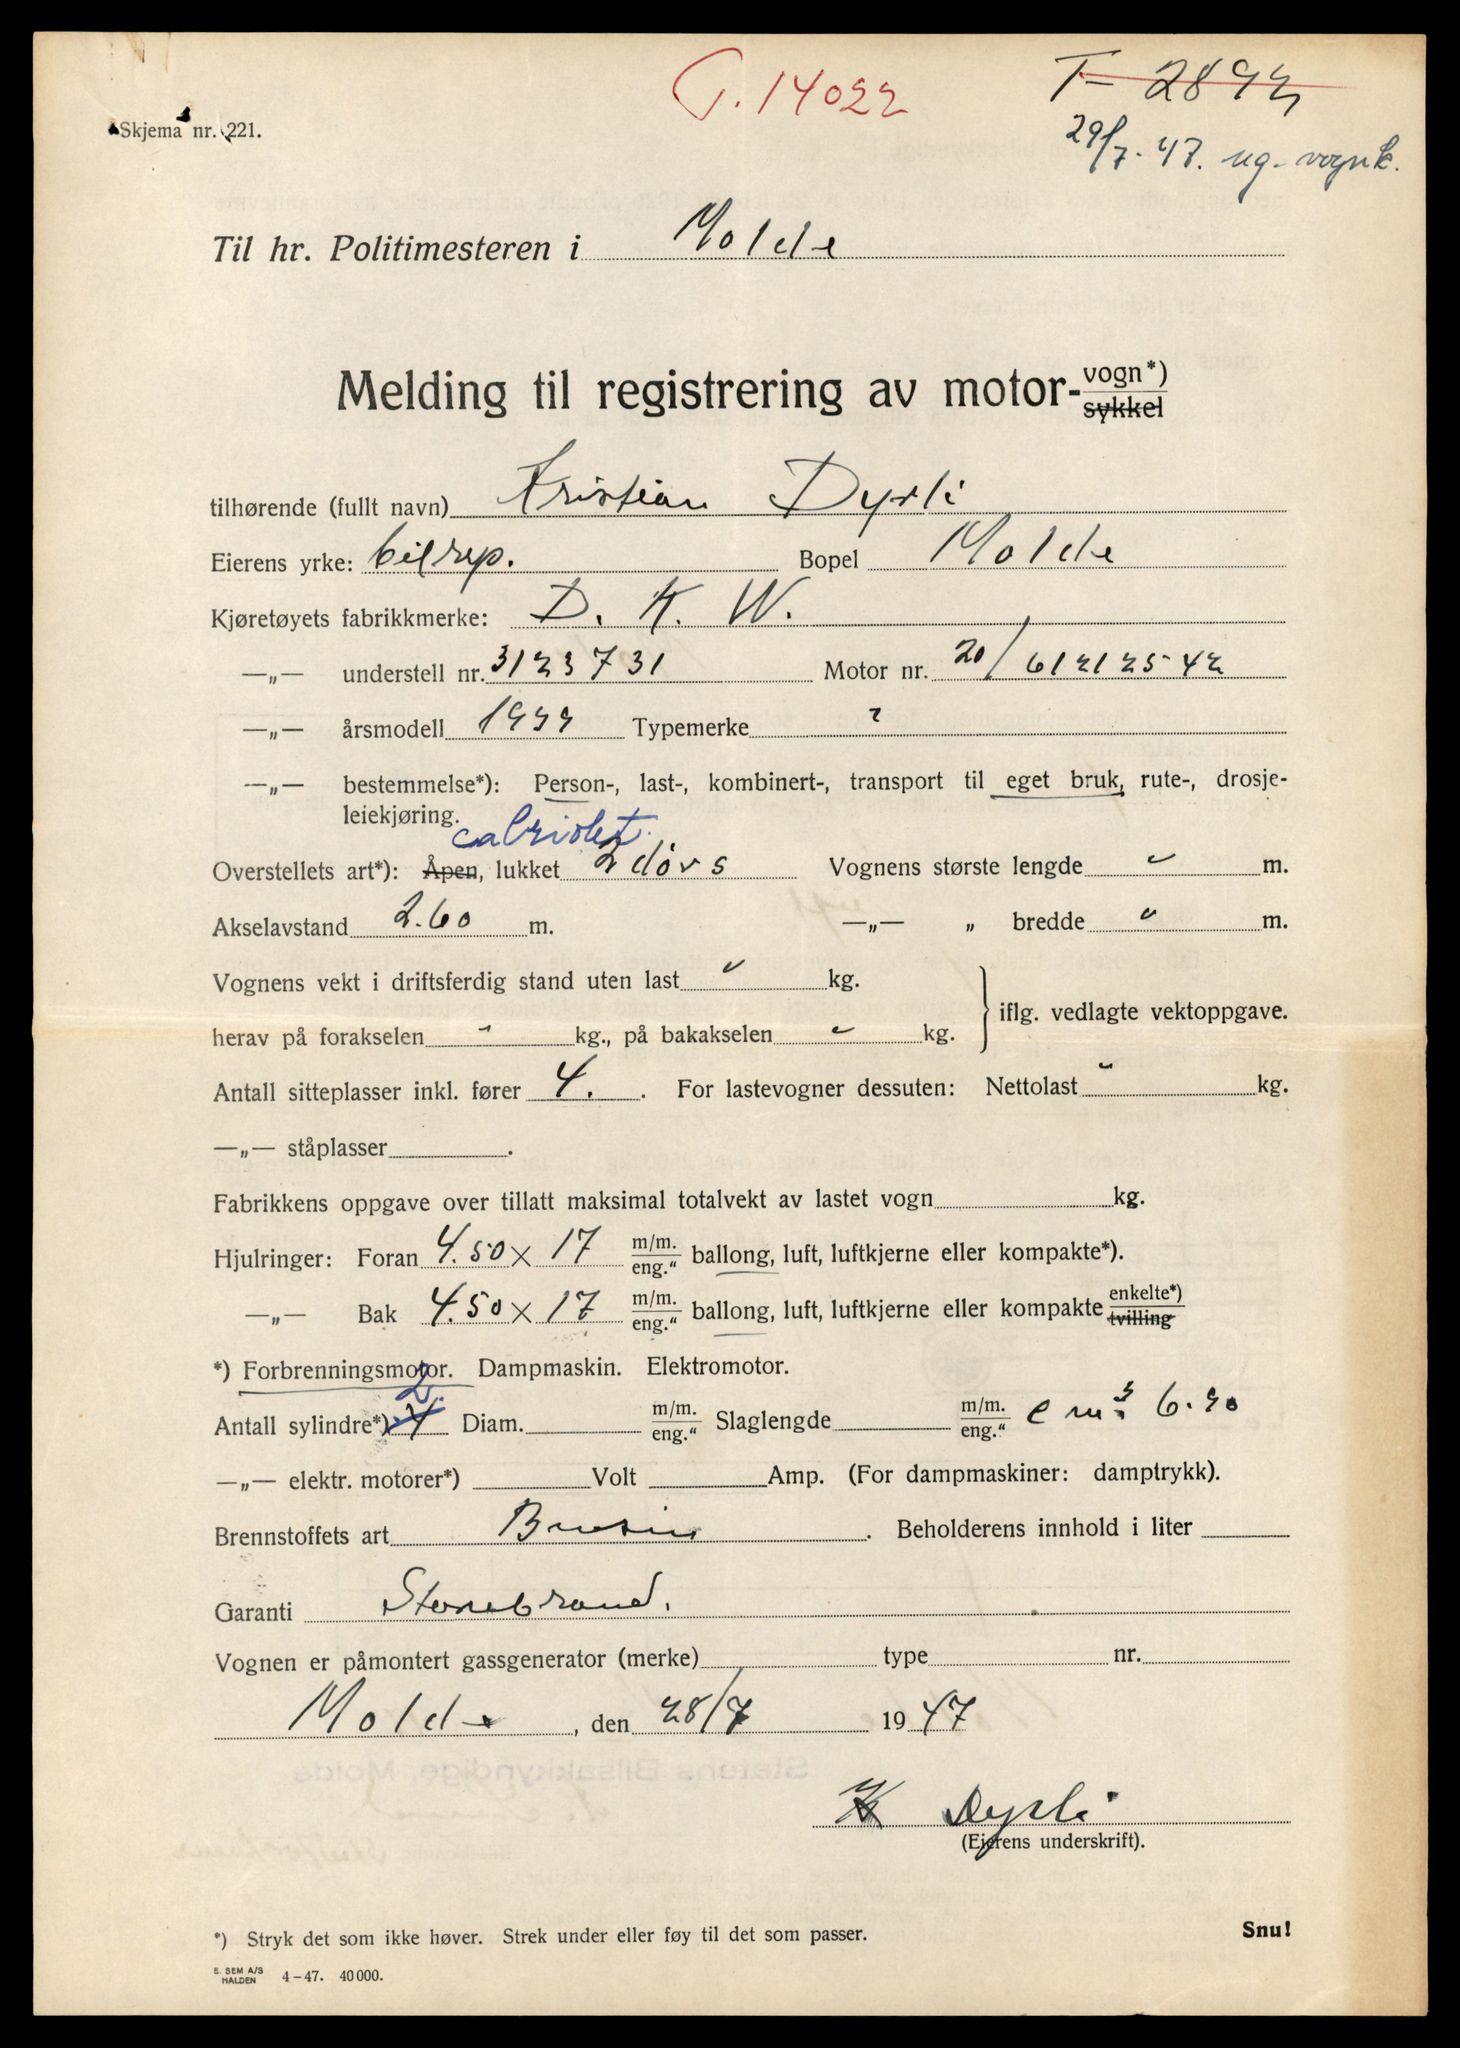 T. 14022
T- 
29/7. 47. ug. vognk.
Skjema nr. 221.
Til hr. Politimesteren i Molde
Melding til registrering av motor- vogn*) sykkel
tilhørende (fullt navn) Kristian Dyrli
Eierens yrke: bilrep. Bopel Molde
Kjøretøyets fabrikkmerke: D. K. W.
—„— understell nr. 3123731 Motor nr. 20/ 61212542
—„— årsmodell Typemerke
—„— bestemmelse*): Person-, last-, kombinert-, transport til eget bruk, rute-, drosje-
leiekjøring.
cabriolet.
Overstellets art*): Åpen, lukket 2 dørs Vognens største lengde " m.
Akselavstand 2.60 m. —„— „ bredde " m.
Vognens vekt i driftsferdig stand uten last " kg.
herav på forakselen " kg., på bakakselen " kg. } iflg. vedlagte vektoppgave.
Antall sitteplasser inkl. fører 4. . For lastevogner dessuten: Nettolast " kg.
—„— ståplasser .
Fabrikkens oppgave over tillatt maksimal totalvekt av lastet vogn kg.
Hjulringer: Foran 4.50 x 17 m/m. eng.“ ballong, luft, luftkjerne eller kompakte*).
—„— Bak 4.50 x 17 m/m. eng.“ ballong, luft, luftkjerne eller kompakte enkelte*) tvilling
*) Forbrenningsmotor. Dampmaskin. Elektromotor.
Antall sylindre*) 4 2. Diam. m/m. eng.“ Slaglengde m/m. eng.“ cm³
—„— elektr. motorer*) Volt Amp. (For dampmaskiner: damptrykk).
Brennstoffets art Bensin . Beholderens innhold i liter
Garanti Storebrand.
Vognen er påmontert gassgenerator (merke) type nr.
Molde , den 28/7 1947
K Dyrli
(Eierens underskrift).
*) Stryk det som ikke høver. Strek under eller føy til det som passer.
Snu!
E. SEM A/S
HALDEN 4–47. 40 000.